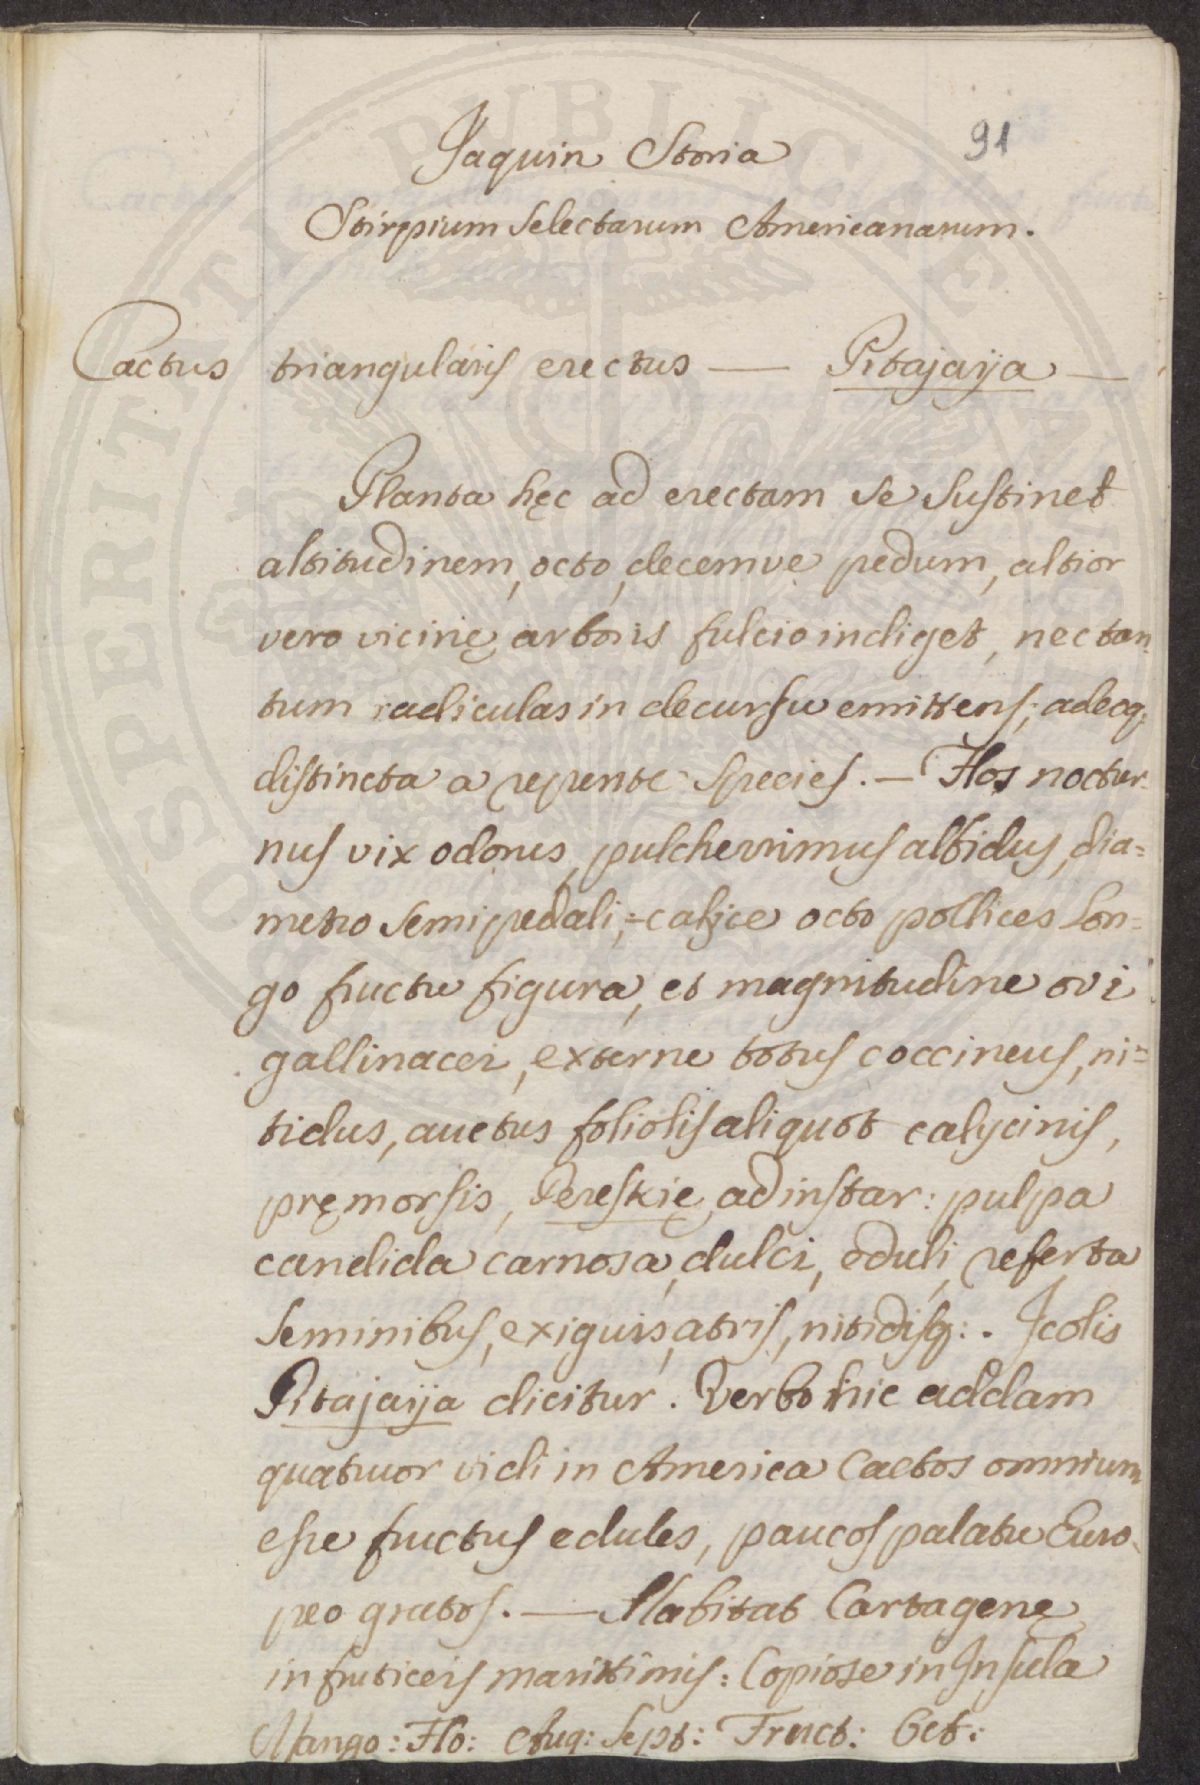 91
Jaquin Storia
Stirpium Selectarum Americanarum.
Cactus triangularis erectus — Pitajaija —
Planta hęc ad erectam se sustinet
altitudinem, octo, decemve pedum, altior
vero vicinę arboris fulcio indiget, nec tan
tum radiculas in decursu emittens; adeoq;
distincta a repente species. — Flos noctur-
nus vix odorus, pulcherrimus albidus, dia=
metro semipedali;- calyce octo pollices lon=
go fructu figura, et magnitudine ovi
gallinacei, externe totus coccineus, ni=
tidus, auctus foliolis aliquot calycinis,
pręmorsis, Pereskię adinstar: pulpa
candida carnosa, dulci, eduli, referta
seminibus, exiguis, atris, nitidisq:. Icolis
Pitajaija dicitur. Verbo hic addam
quatuor vidi in America Cactos omnium
esse fructus edules, paucos palatu Euro-
peo gratos. — Habitat Cartagenę
in fruticeis marittimis: Copiose in Insula
Mango: Flo: Aug: Sept: Fruct: Oct:
PROSPERITATI PUBLICAE